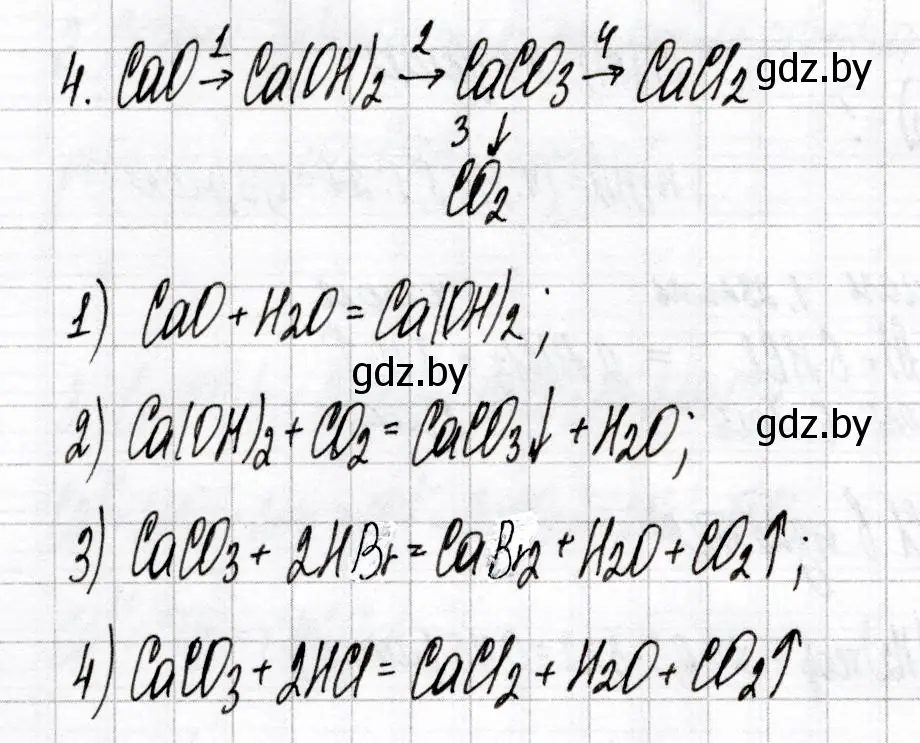 4. CaO 1→ Ca(OH)2 2→ CaCO3 4→ CaCl2 gdz.by
3 ↓
CO2
1) CaO + H2O = Ca(OH)2 ;
gdz.by
2) Ca(OH)2 + CO2 = CaCO3↓ + H2O; gdz.by
3) CaCO3 + 2HBr = CaBr2 + H2O + CO2↑;
4) CaCO3 + 2HCl = CaCl2 + H2O + CO2↑